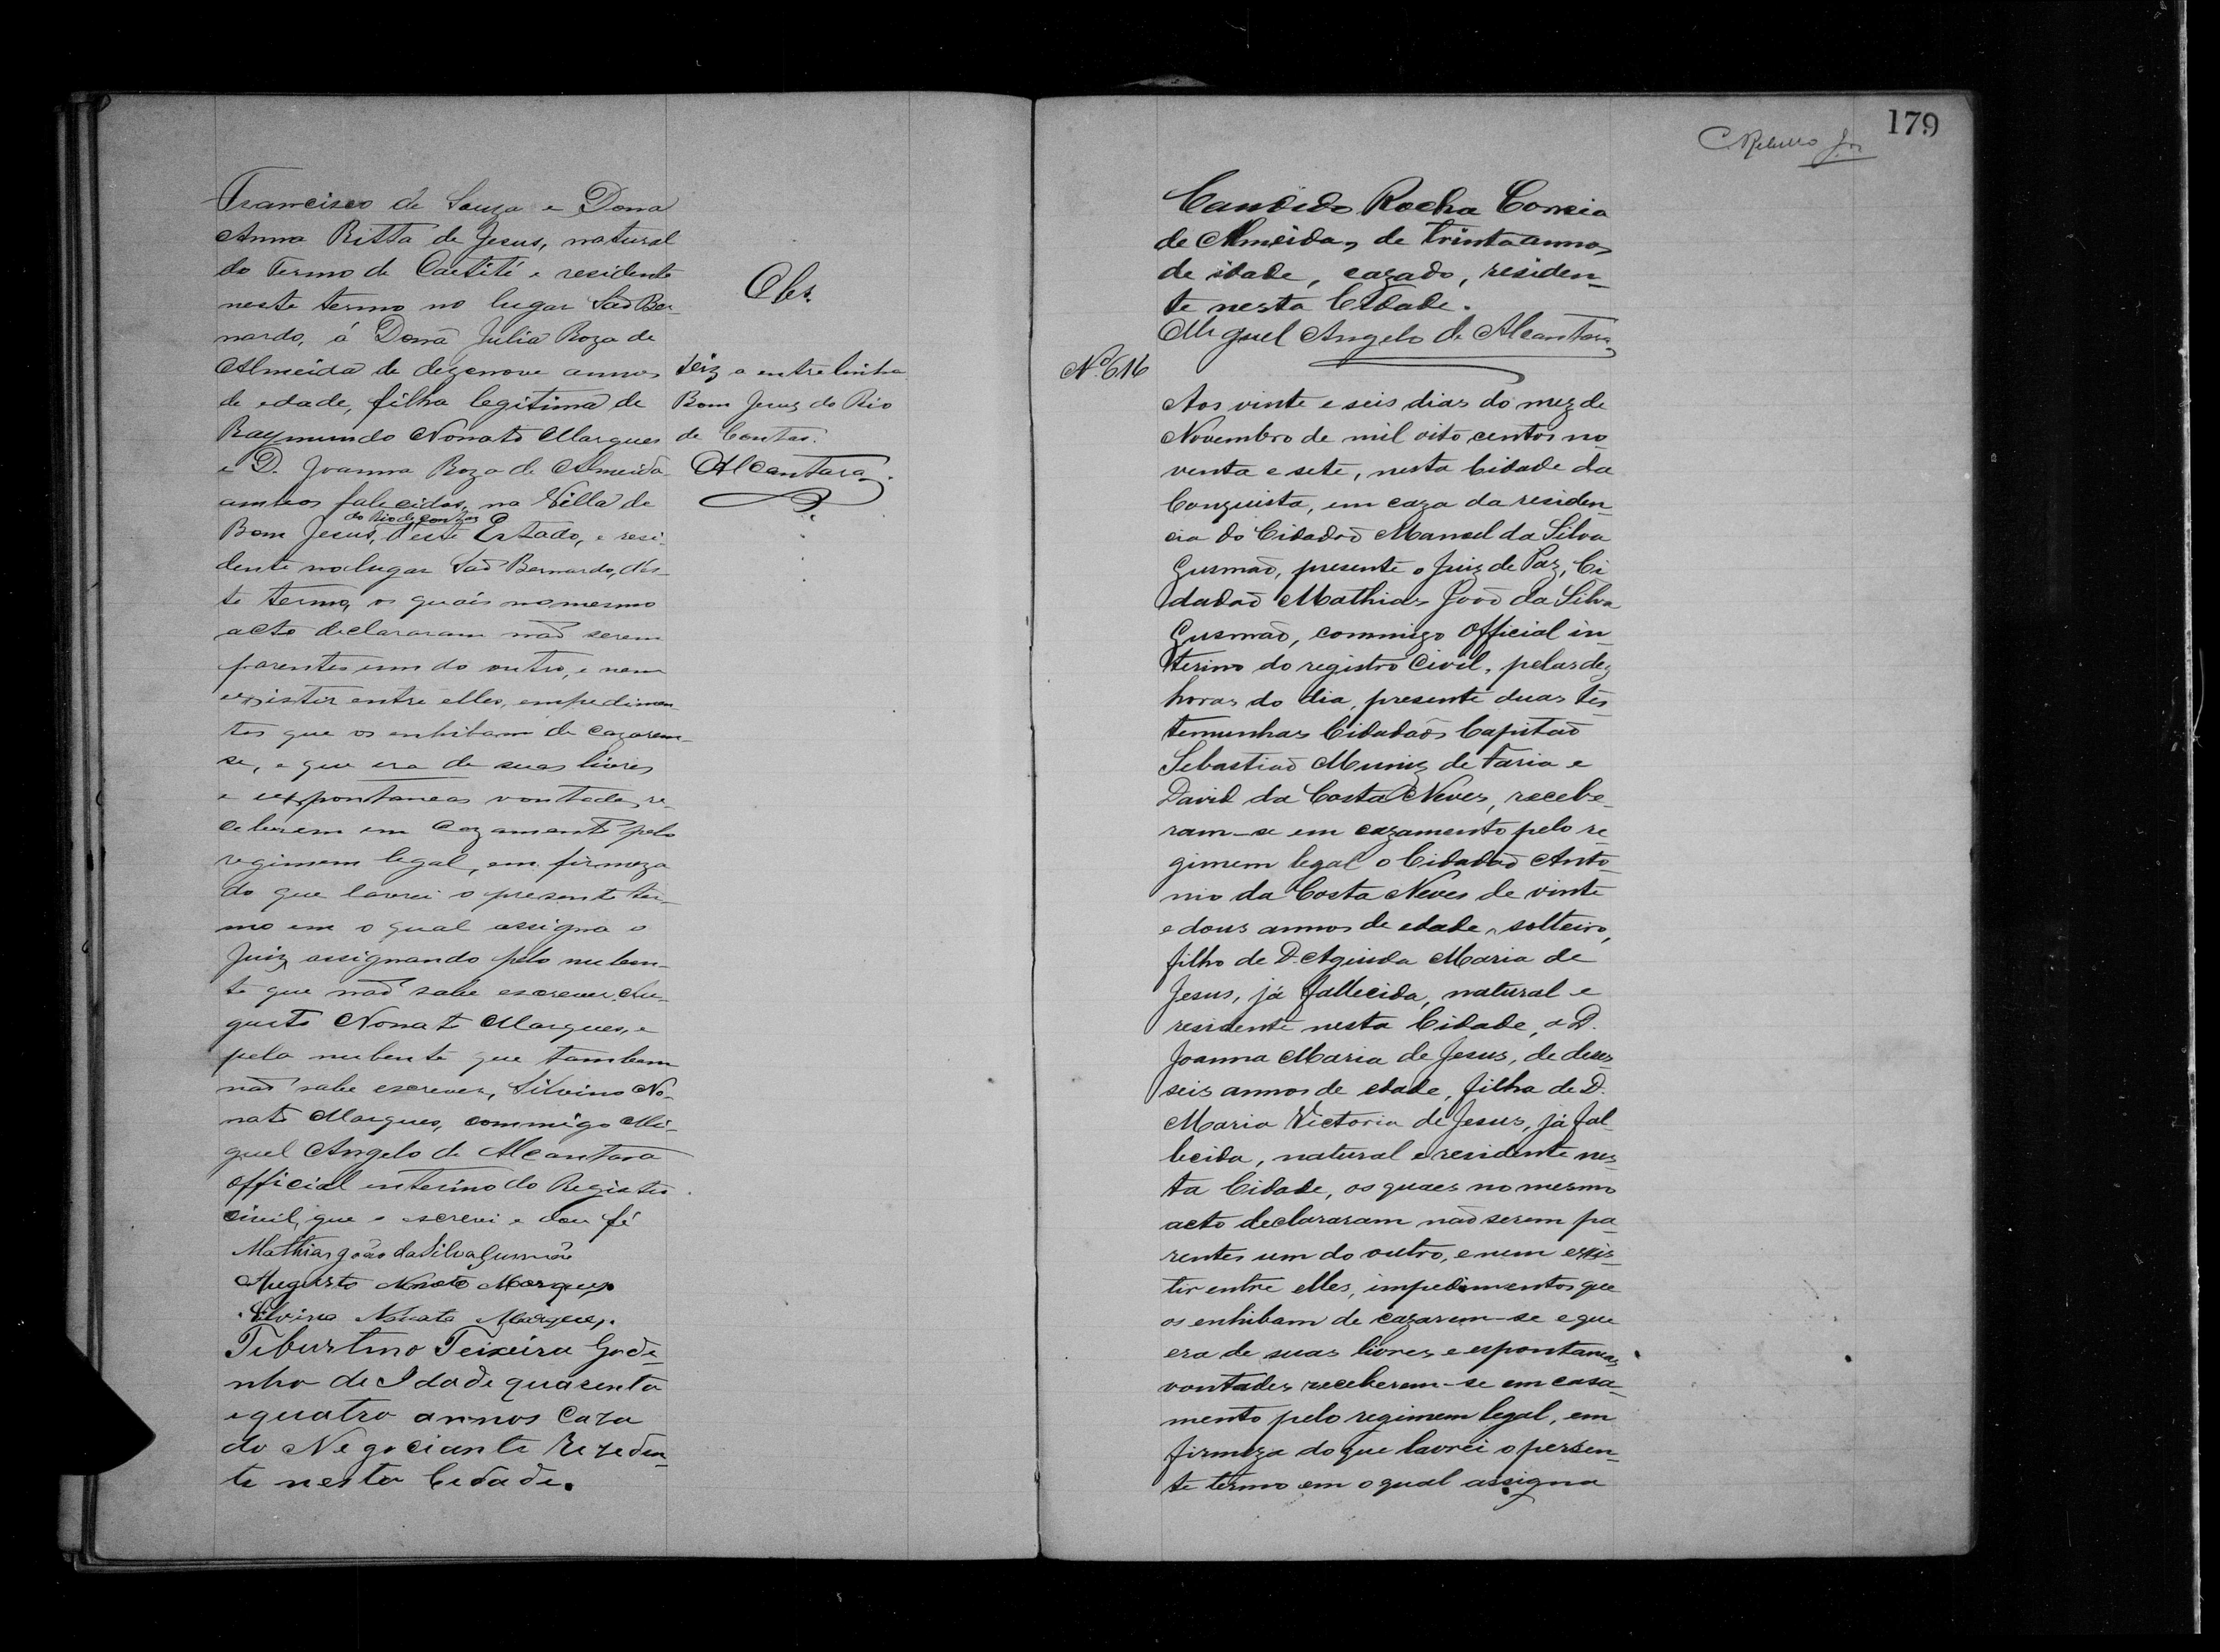 Francisco de Souza e Dona
Anna Ritta de Jesus, natural
do Termo de Caetité e residente
neste termo no lugar São Ber-
nardo, á Dona Julia Roza de
Almeida de dezenove annos
de edade, filha legitima de
Raymundo Nonato Marques
e D. Joanna Roza de Almeida
ambos falecidos, na Villa de
do Rio de Contas
Bom Jesus, deste Estado, e resi-
dente no lugar São Bernardo, dés-
te termo, os quáis no mesmo
acto declararam não serem
parentes um do outro, e nem
existir entre elles, empedimen-
tos que os enhibam de cazarem-
se, e que era de suas livres
e expontaneas vontades, re-
ceberem em Cazamento pelo
regimem legal, em firmeza
do que lavrei o presente ter-
mo em o qual assigna o
Juiz assignando pelo nuben-
te que não sabe escrever, Au-
gusto Nonato Marques, e
pela nubente que tambem
não sabe escrever, Silvino No-
nato Marques, commigo Mi-
guel Angelo de Alcantara
official interino do Registro
civil, que o escrevi e dou fé
Mathias João da Silva Gusmão
Augusto Nonato Marques
Silvino Nonato Marques.
Tiburtino Teixeira Godi-
nho de Idade quarenta
e quatro annos Caza
do Negociante Rezeden-
te nesta Cedade.
Obs.
Fiz a entrelinha
Bom Jesus do Rio
de Contas.
Alcantara
179
Candido Rocha Correia
de Almeida, de trinta annos
de idade, cazado, residen-
te nesta Cidade.
Miguel Angelo de Alcantara
Nº 616
Aos vinte e seis dias do mez de
Novembro de mil oito centos no-
venta e sete, nesta Cidade da
Conquista, em caza da residen-
cia do Cidadão Manoel da Silva
Gusmão, presente o Juiz de Paz, Ci
dadão Mathias João da Silva
Gusmão, commigo Official in-
terino do registro Civil, pelas dez
horas do dia, presente duas tes-
temunhas Cidadãos Capitão
Sebastião Muniz de Faria e
David da Costa Neves, recebe-
ram-se em cazamento pelo re
gimem legal o Cidadão Anto-
nio da Costa Neves de vinte
e dous annos de edade, solteiro,
filho de D. Aguida Maria de
Jesus, já fallecida, natural e
residente nesta Cidade, a D.
Joanna Maria de Jesus, de deses
seis annos de edade, filha de D.
Maria Victoria de Jesus, já fal-
lecida, natural e residente nes-
ta Cidade, os quaes no mesmo
acto declararam não serem pa
rentes um do outro, e nem exis-
tir entre elles, impedimentos que
os enhibam de cazarem-se e que
era de suas livres e espontaneas
vontades receberem-se em casa-
mento pelo regimem legal, em
firmeza do que lavrei o persen-
te termo em o qual assigna